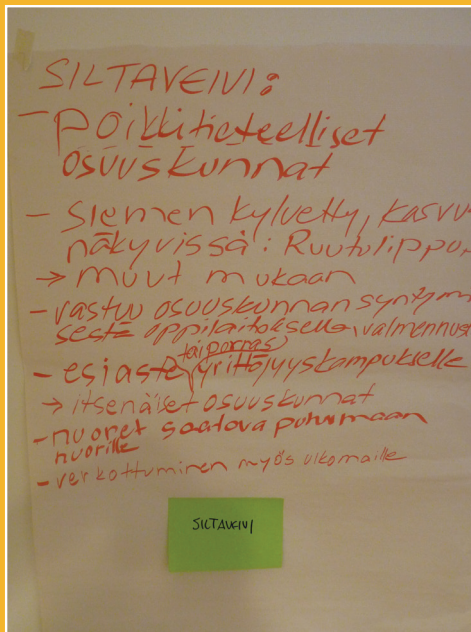 SILTAVEIVI:
- poikkitieteelliset
osuuskunnat
- Siemen kylvetty, kasvu
näkyvissä: Ruutulippu,
→ muut mukaan
- vastuu osuuskunnan synty
sestä oppilaitoksella, valmennus
tai porras
- esiaste yrittäjyyskampukselle
→ itsenäiset osuuskunnat
- nuoret saatava puhumaan
nuorille
- verkottuminen myös ulkomaille
SILTAVEIVI